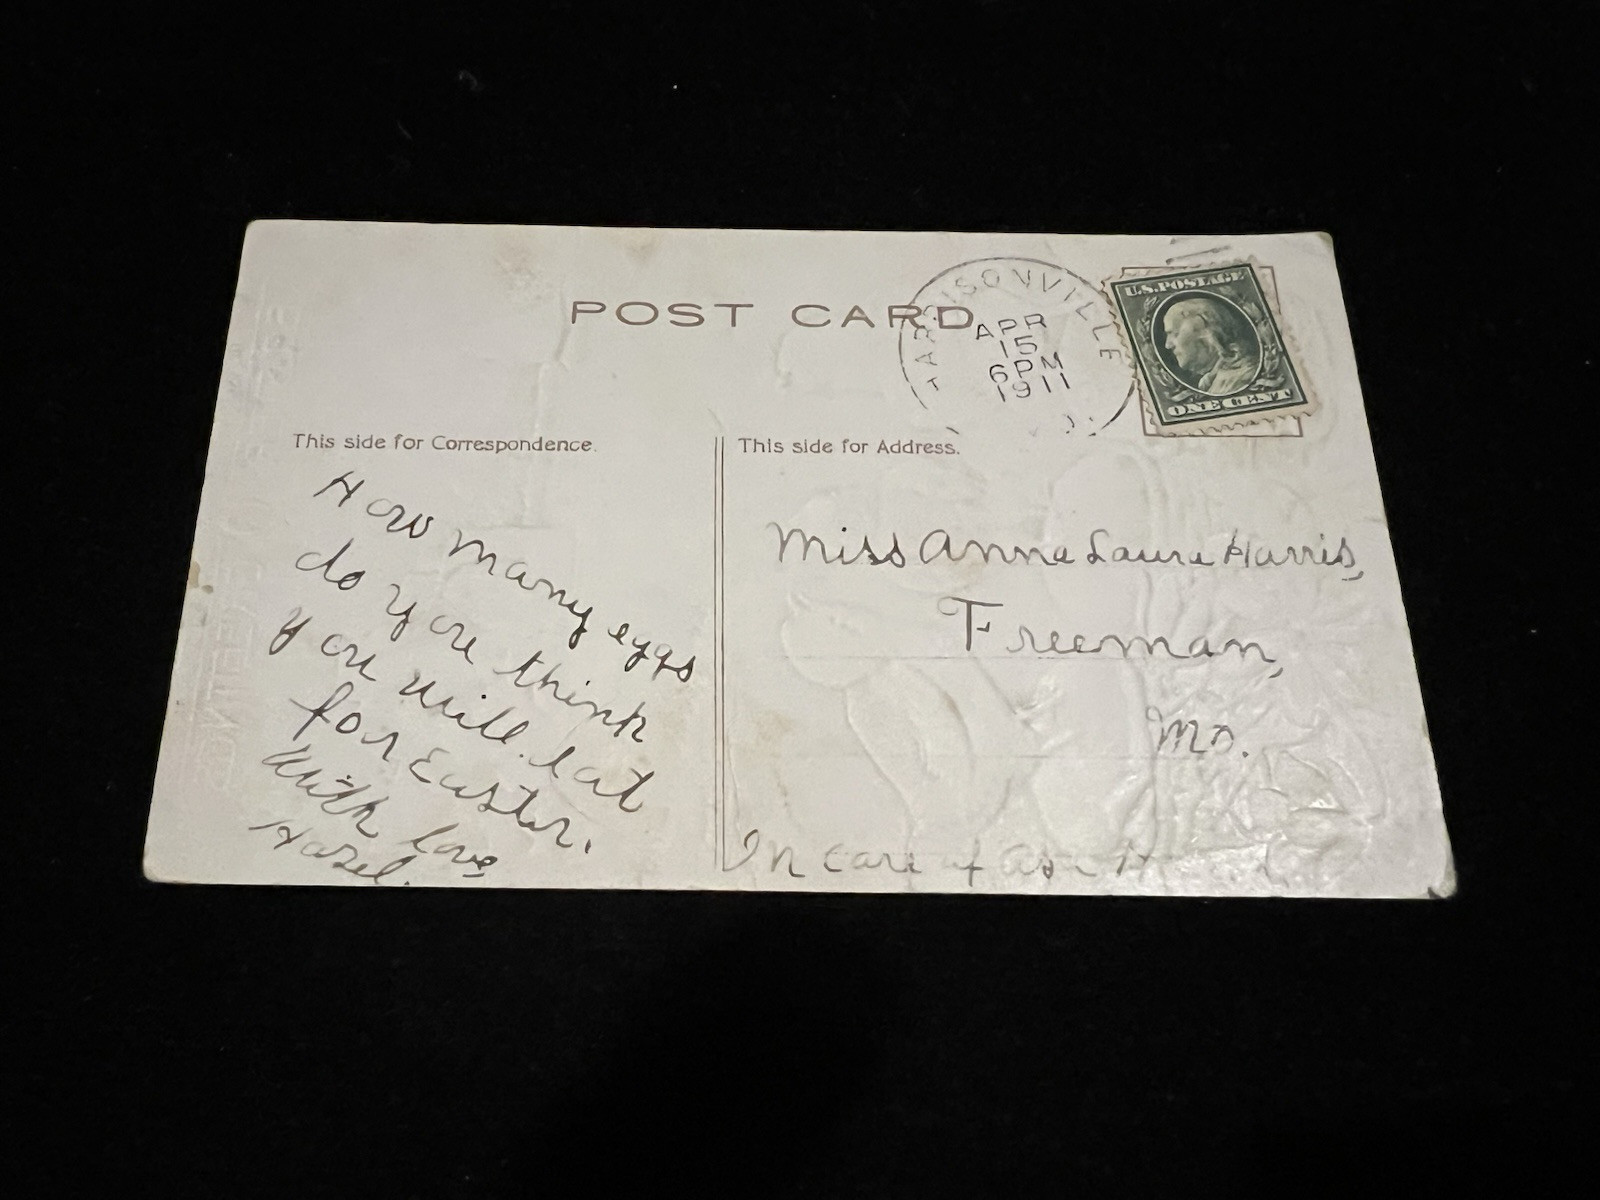 POST CARD
HARRISONVILLE
APR
15
6 PM
1911
U.S. POSTAGE
ONE CENT
This side for Correspondence.
How many eggs
do you think
you will eat
for Easter.
With love
Hazel.
This side for Address.
Miss Anna Laura Harris,
Freeman,
Mo.
In care of